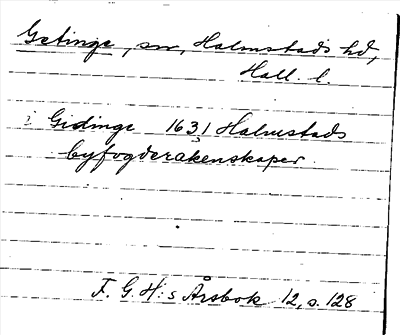 Getinge, sn, Halmstads hd,
Hall. l.
i Gedinge 1631 Halmstads
byfogderäkenskaper.
F. G. H:s Årsbok 12, s. 128